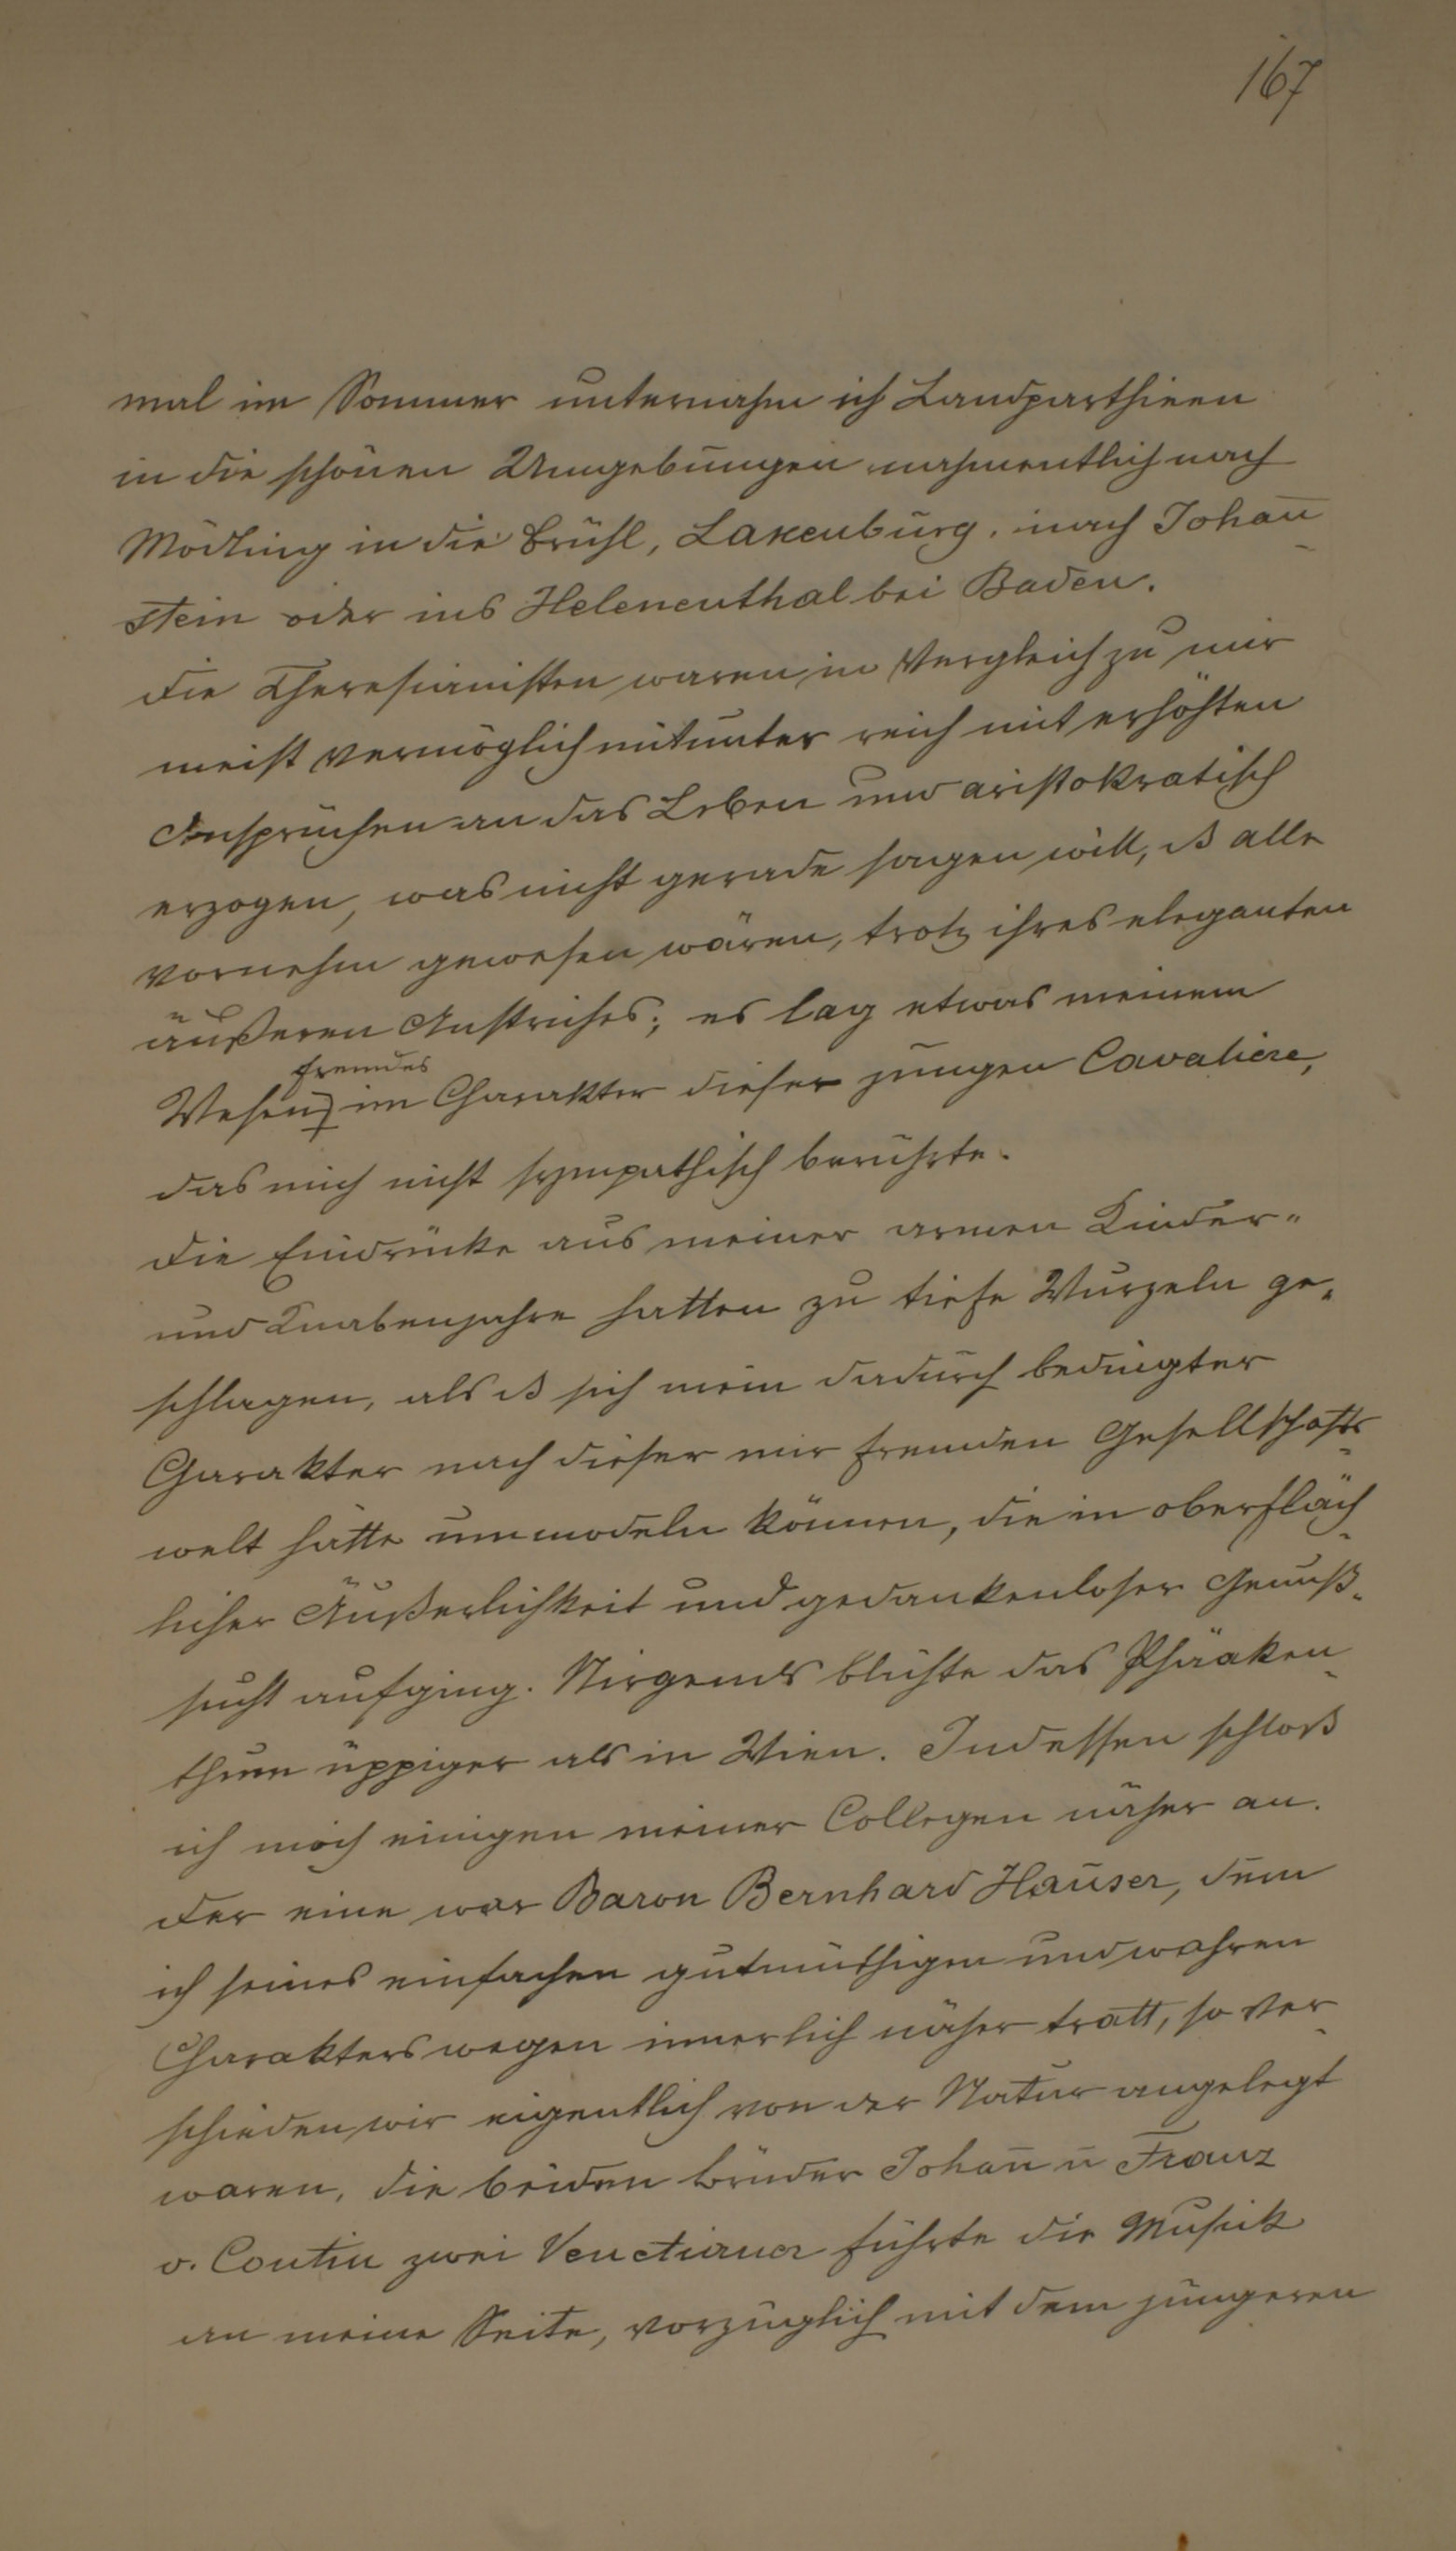 167
mal im Sommer unternahm ich Landparthieen
in die schönen Umgebungen nahmentlich nach
Mödling in die Brühl, Laxenburg, nach Johan̄-
stein oder ins Helenenthal bei Baden.
Die Theresianisten waren in Vergleich zu mir
meist vermöglich mitunter reich mit erhöhten
Ansprüchen an das Leben und aristokratisch
erzogen, was nicht gerade sagen will, ds alle
vornehm gewesen wären, trotz ihres eleganten
äußeren Anstriches; es lag etwas meinem
fremdes
Wesen im Charakter dieser jungen Cavaliere,
das mich nicht sympathisch berührte.
Die Eindrücke aus meiner armen Kinder-
und Knabenjahre hatten zu tiefe Wurzeln ge-
schlagen, als ds sich mein dadurch bedingter
Charakter nach dieser mir fremden Gesellschafts-
welt hätte ummodeln können, die in oberfläch-
licher Äußerlichkeit und gedankenloser Genuß-
sucht aufging. Nirgends blühte das Phäaken-
thum üppiger als in Wien. Indessen schloß
ich mich einigen meiner Collegen näher an.
Der eine war Baron Bernhard Hauser, dem
ich seines einfachen gutmüthigen und wahren
Charakters wegen innerlich näher tratt, so ver-
schieden wir eigentlich von der Natur angelegt
waren, die beiden Brüder Johan̄ u Franz
v. Contin zwei Venetianer führte die Musik
an meine Seite, vorzüglich mit dem jüngeren